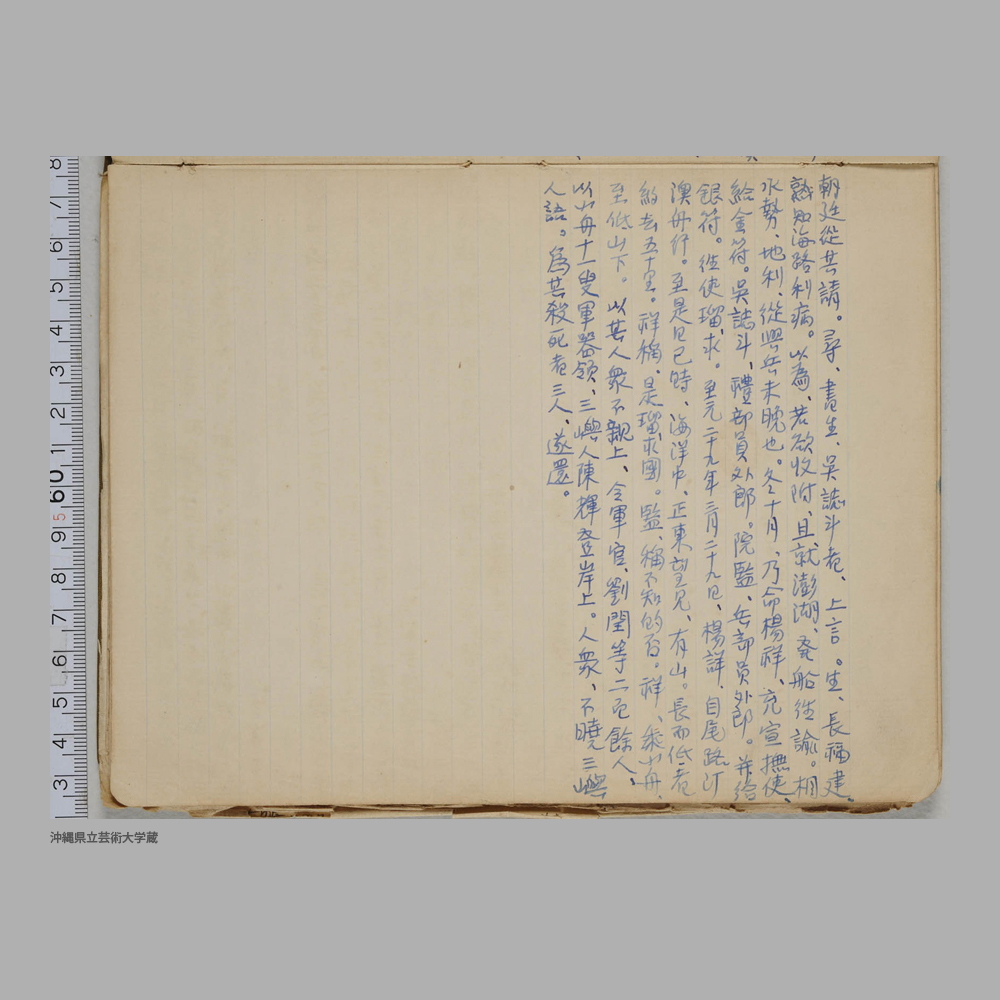 朝廷從其請。尋、書生、吳誌斗者、上言。生、長福建、
熟知海路利病。以為、若欲收附、且就澎湖、発船往諭。相
水勢、地利、從興兵未晚也。冬十月、乃命楊祥、充宣撫使、
給金符。吳誌斗、禮部員外郎。院監、兵部員外郎。并給
銀符。往使瑠求。至元二十九年三月二十九日、楊詳、自尾路汀
澳舟行。至是日巳時、海洋中、正東望見、有山。長而低者
約去五十里。祥稱、是瑠求國。監、稱不知的否。祥、乘小舟、
至低山下。以其人衆不親上、令軍官、劉閏等二百餘人、
以小舟十一叟軍器領、三嶼人陳輝登岸上。人衆、不曉三嶼
人語。為其殺死者三人、遂還。
8 7 6 5 4 3 2 1 60 9 5 8 7 6 5 4 3
沖縄県立芸術大学蔵